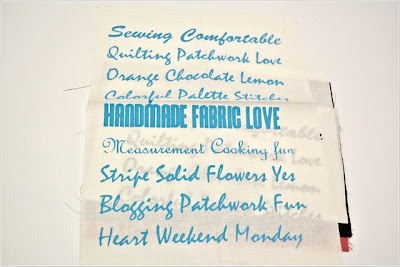 Sewing Comfortable
Quilting Patchwork Love
Orange Chocolate Lemon
Colorful Palette Stitches
HANDMADE FABRIC LOVE
Measurement Cooking fun
Stripe Solid Flowers Yes
Blogging Patchwork Fun
Heart Weekend Monday